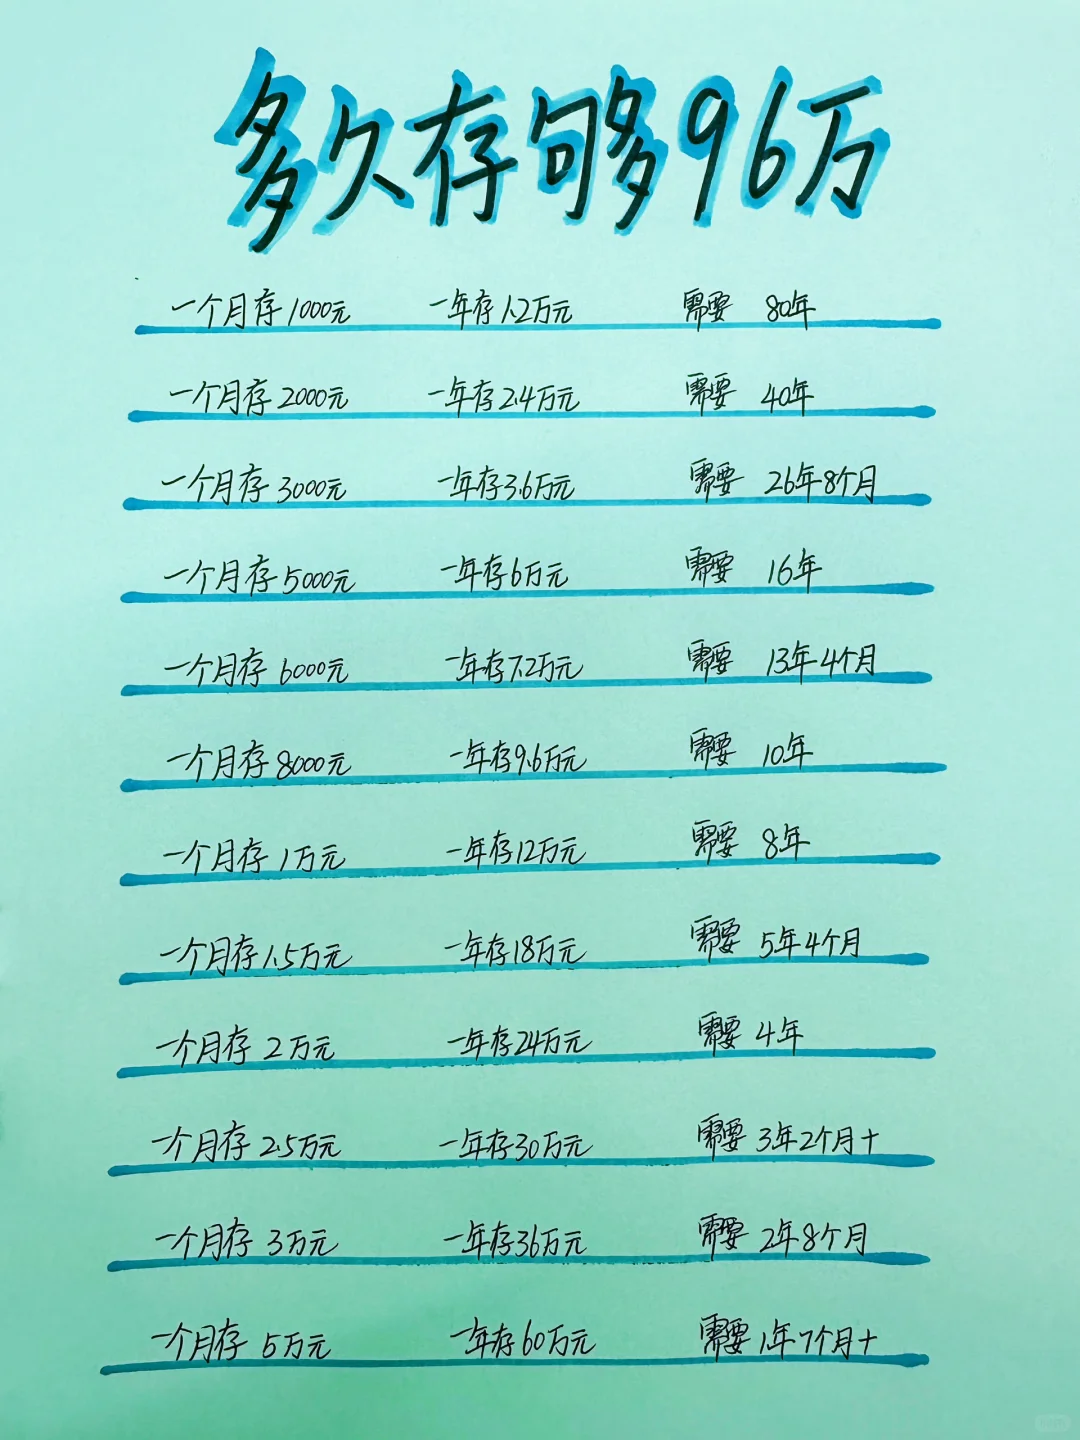 多久存够96万
一个月存1000元 一年存1.2万元 需要 80年
一个月存2000元 一年存2.4万元 需要 40年
一个月存3000元 一年存3.6万元 需要 26年8个月
一个月存5000元 一年存6万元 需要 16年
一个月存6000元 一年存7.2万元 需要 13年4个月
一个月存8000元 一年存9.6万元 需要 10年
一个月存1万元 一年存12万元 需要 8年
一个月存1.5万元 一年存18万元 需要 5年4个月
一个月存2万元 一年存24万元 需要 4年
一个月存2.5万元 一年存30万元 需要 3年2个月+
一个月存3万元 一年存36万元 需要 2年8个月
一个月存5万元 一年存60万元 需要 1年7个月+